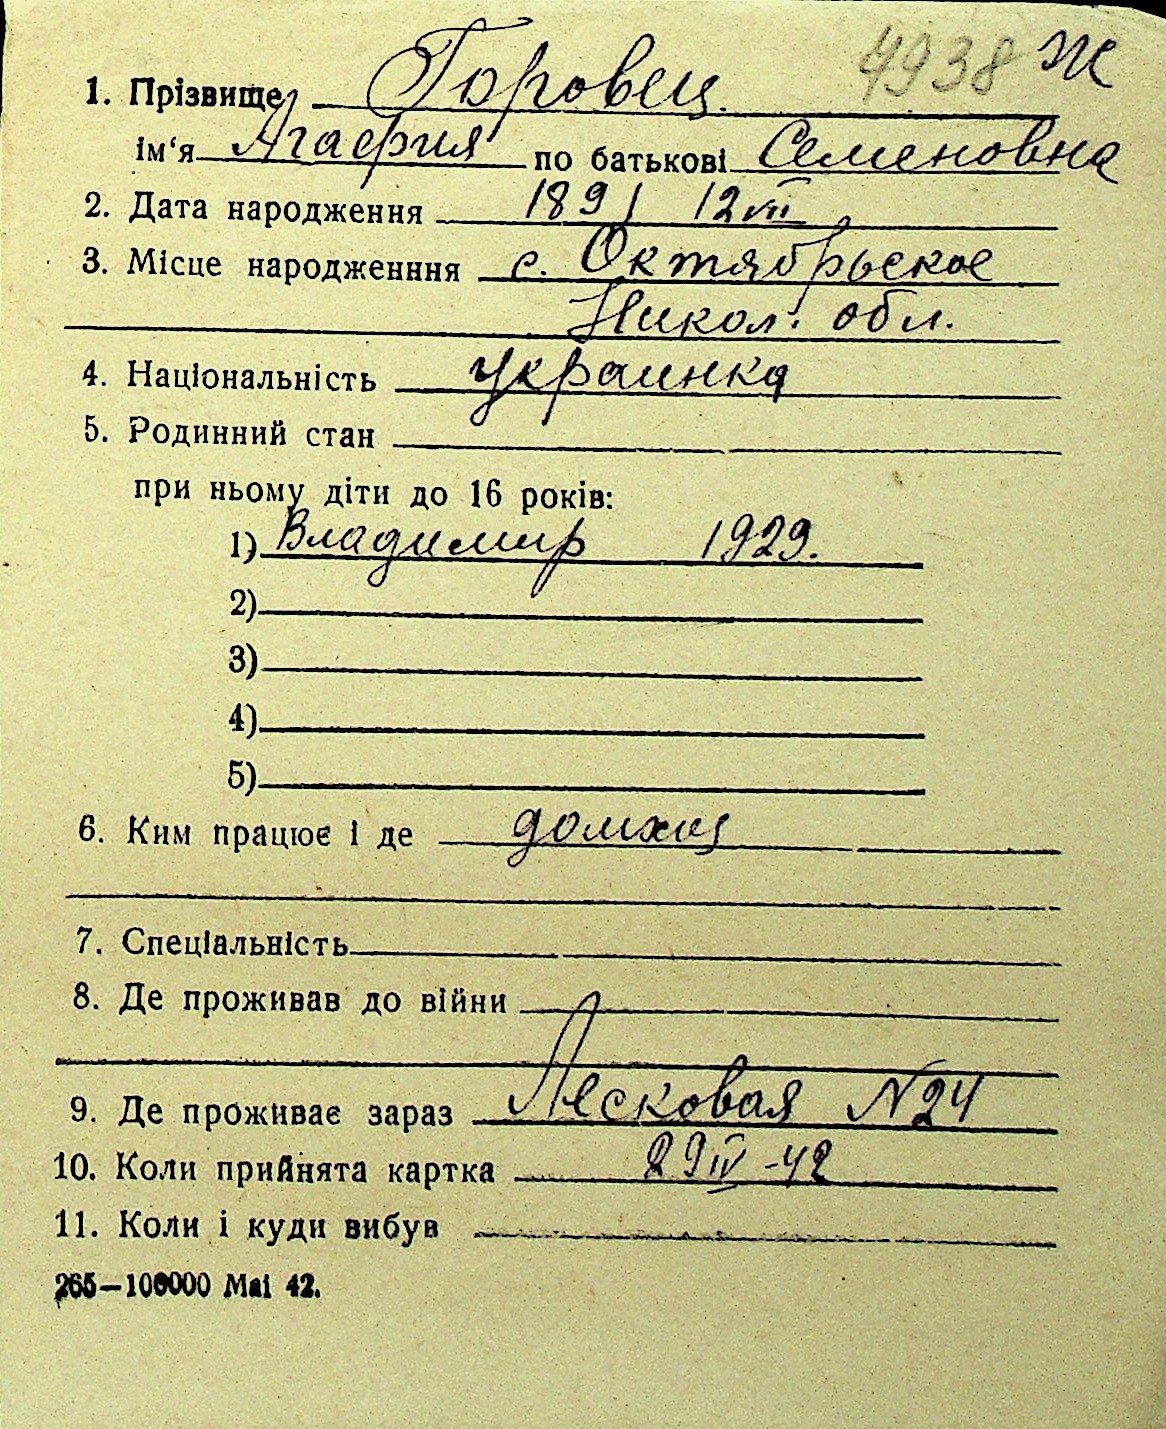 4938 Ж
1. Прізвище, Горовец
ім‘я Агафия по батькові Семеновна
2. Дата народження 1891 12 VII
3. Місце народженння с. Октябрьское
Никол. обл.
4. Національність украинка
5. Родинний стан
при ньому діти до 16 років:
1) Владимир 1929.
2)
3)
4)
5)
6. Ким працює і де домхоз
7. Спеціальність
8. Де проживав до війни
9. Де проживає зараз Лесковая N 24
10. Коли прийнята картка 29 IV -42
11. Коли і куди вибув
265—100000 Маі 42.